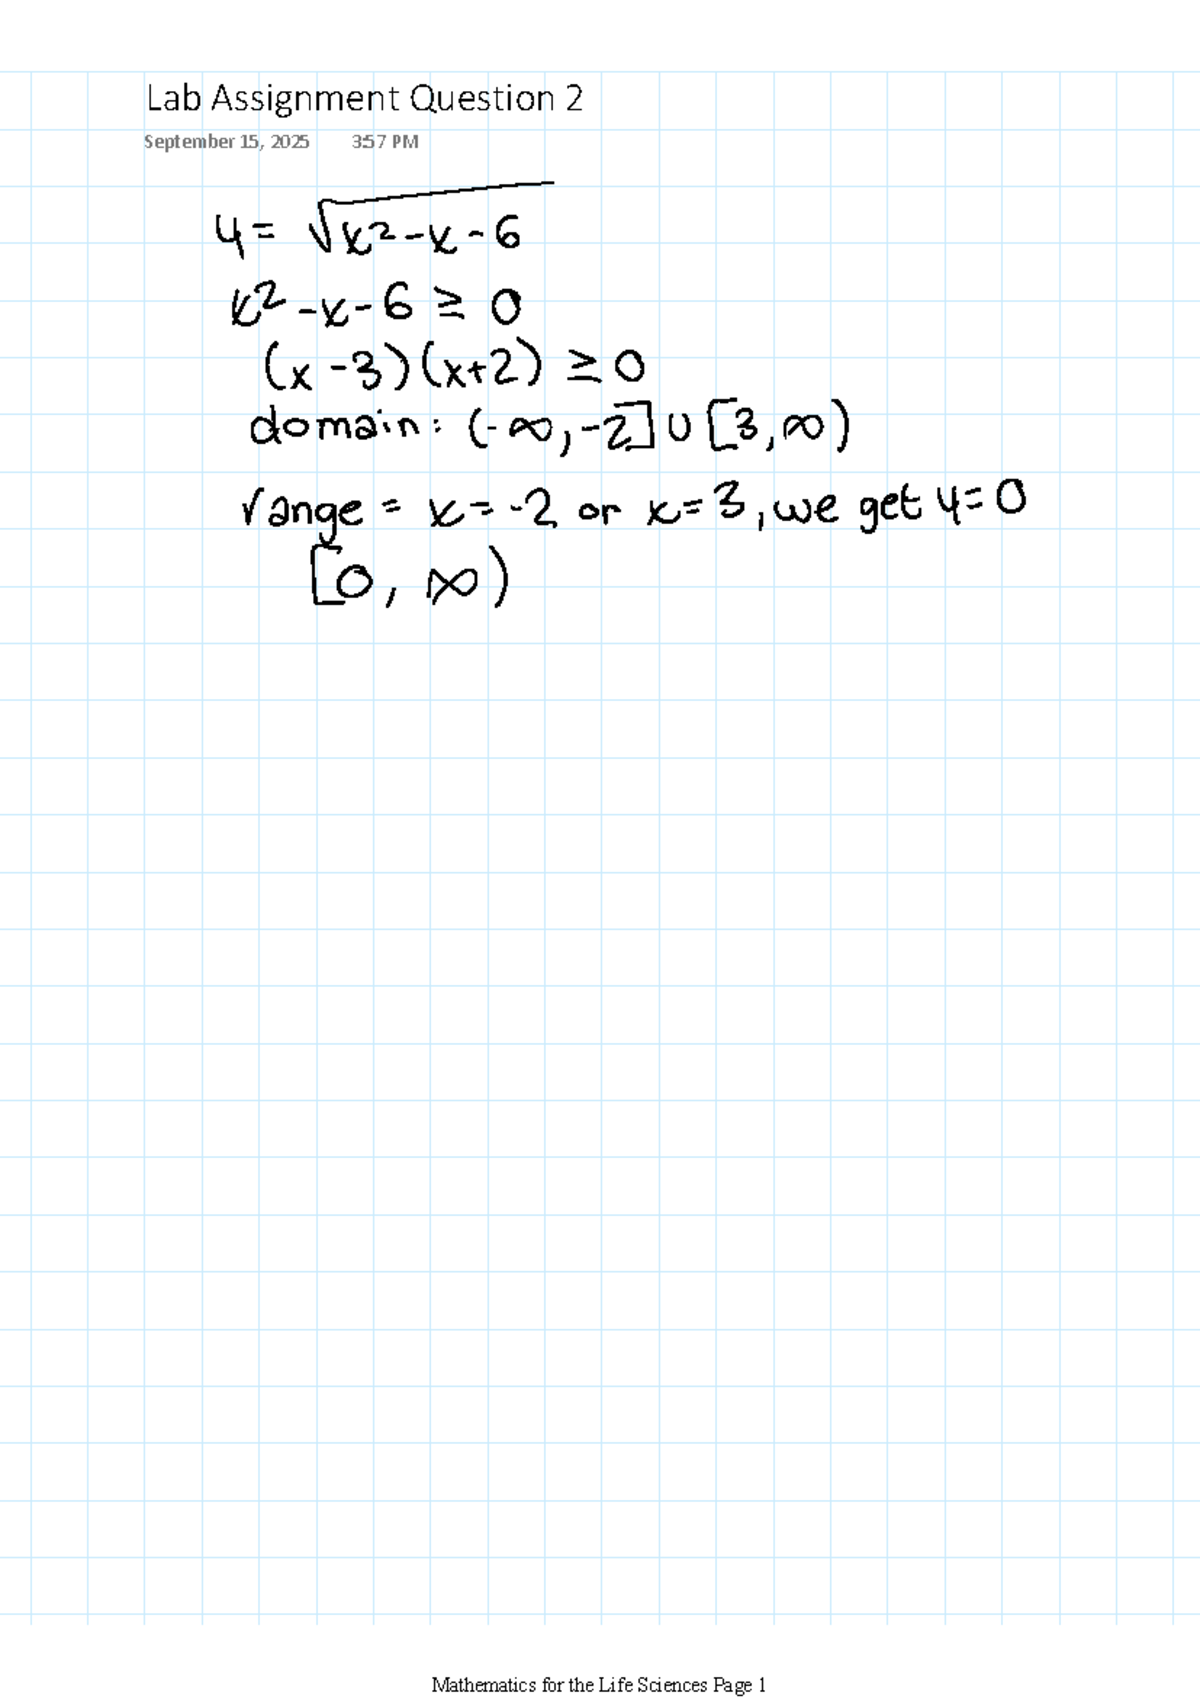 Lab Assignment Question 2
September 15, 2025 3:57 PM
y = √x² - x - 6
x² - x - 6 ≥ 0
(x - 3)(x+2) ≥ 0
domain: (-∞, -2] ∪ [3, ∞)
range = x = -2 or x = 3, we get y = 0
[0, ∞)
Mathematics for the Life Sciences Page 1